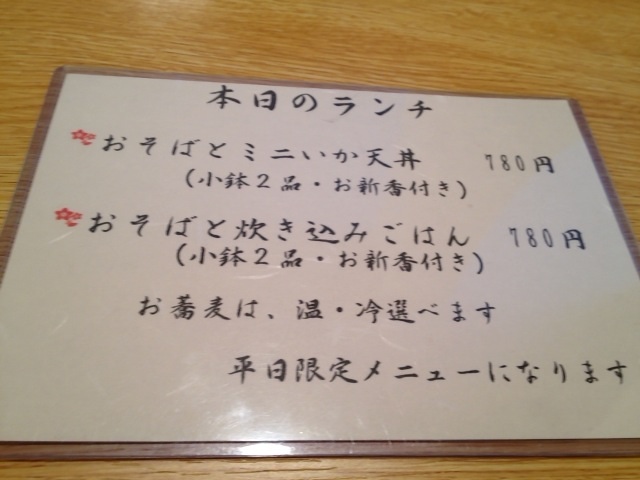 本日のランチ
おそばとミニいか天丼 780円
(小鉢2品・お新香付き)
おそばと炊き込みごはん 780円
(小鉢2品・お新香付き)
お蕎麦は、温・冷選べます
平日限定メニューになります